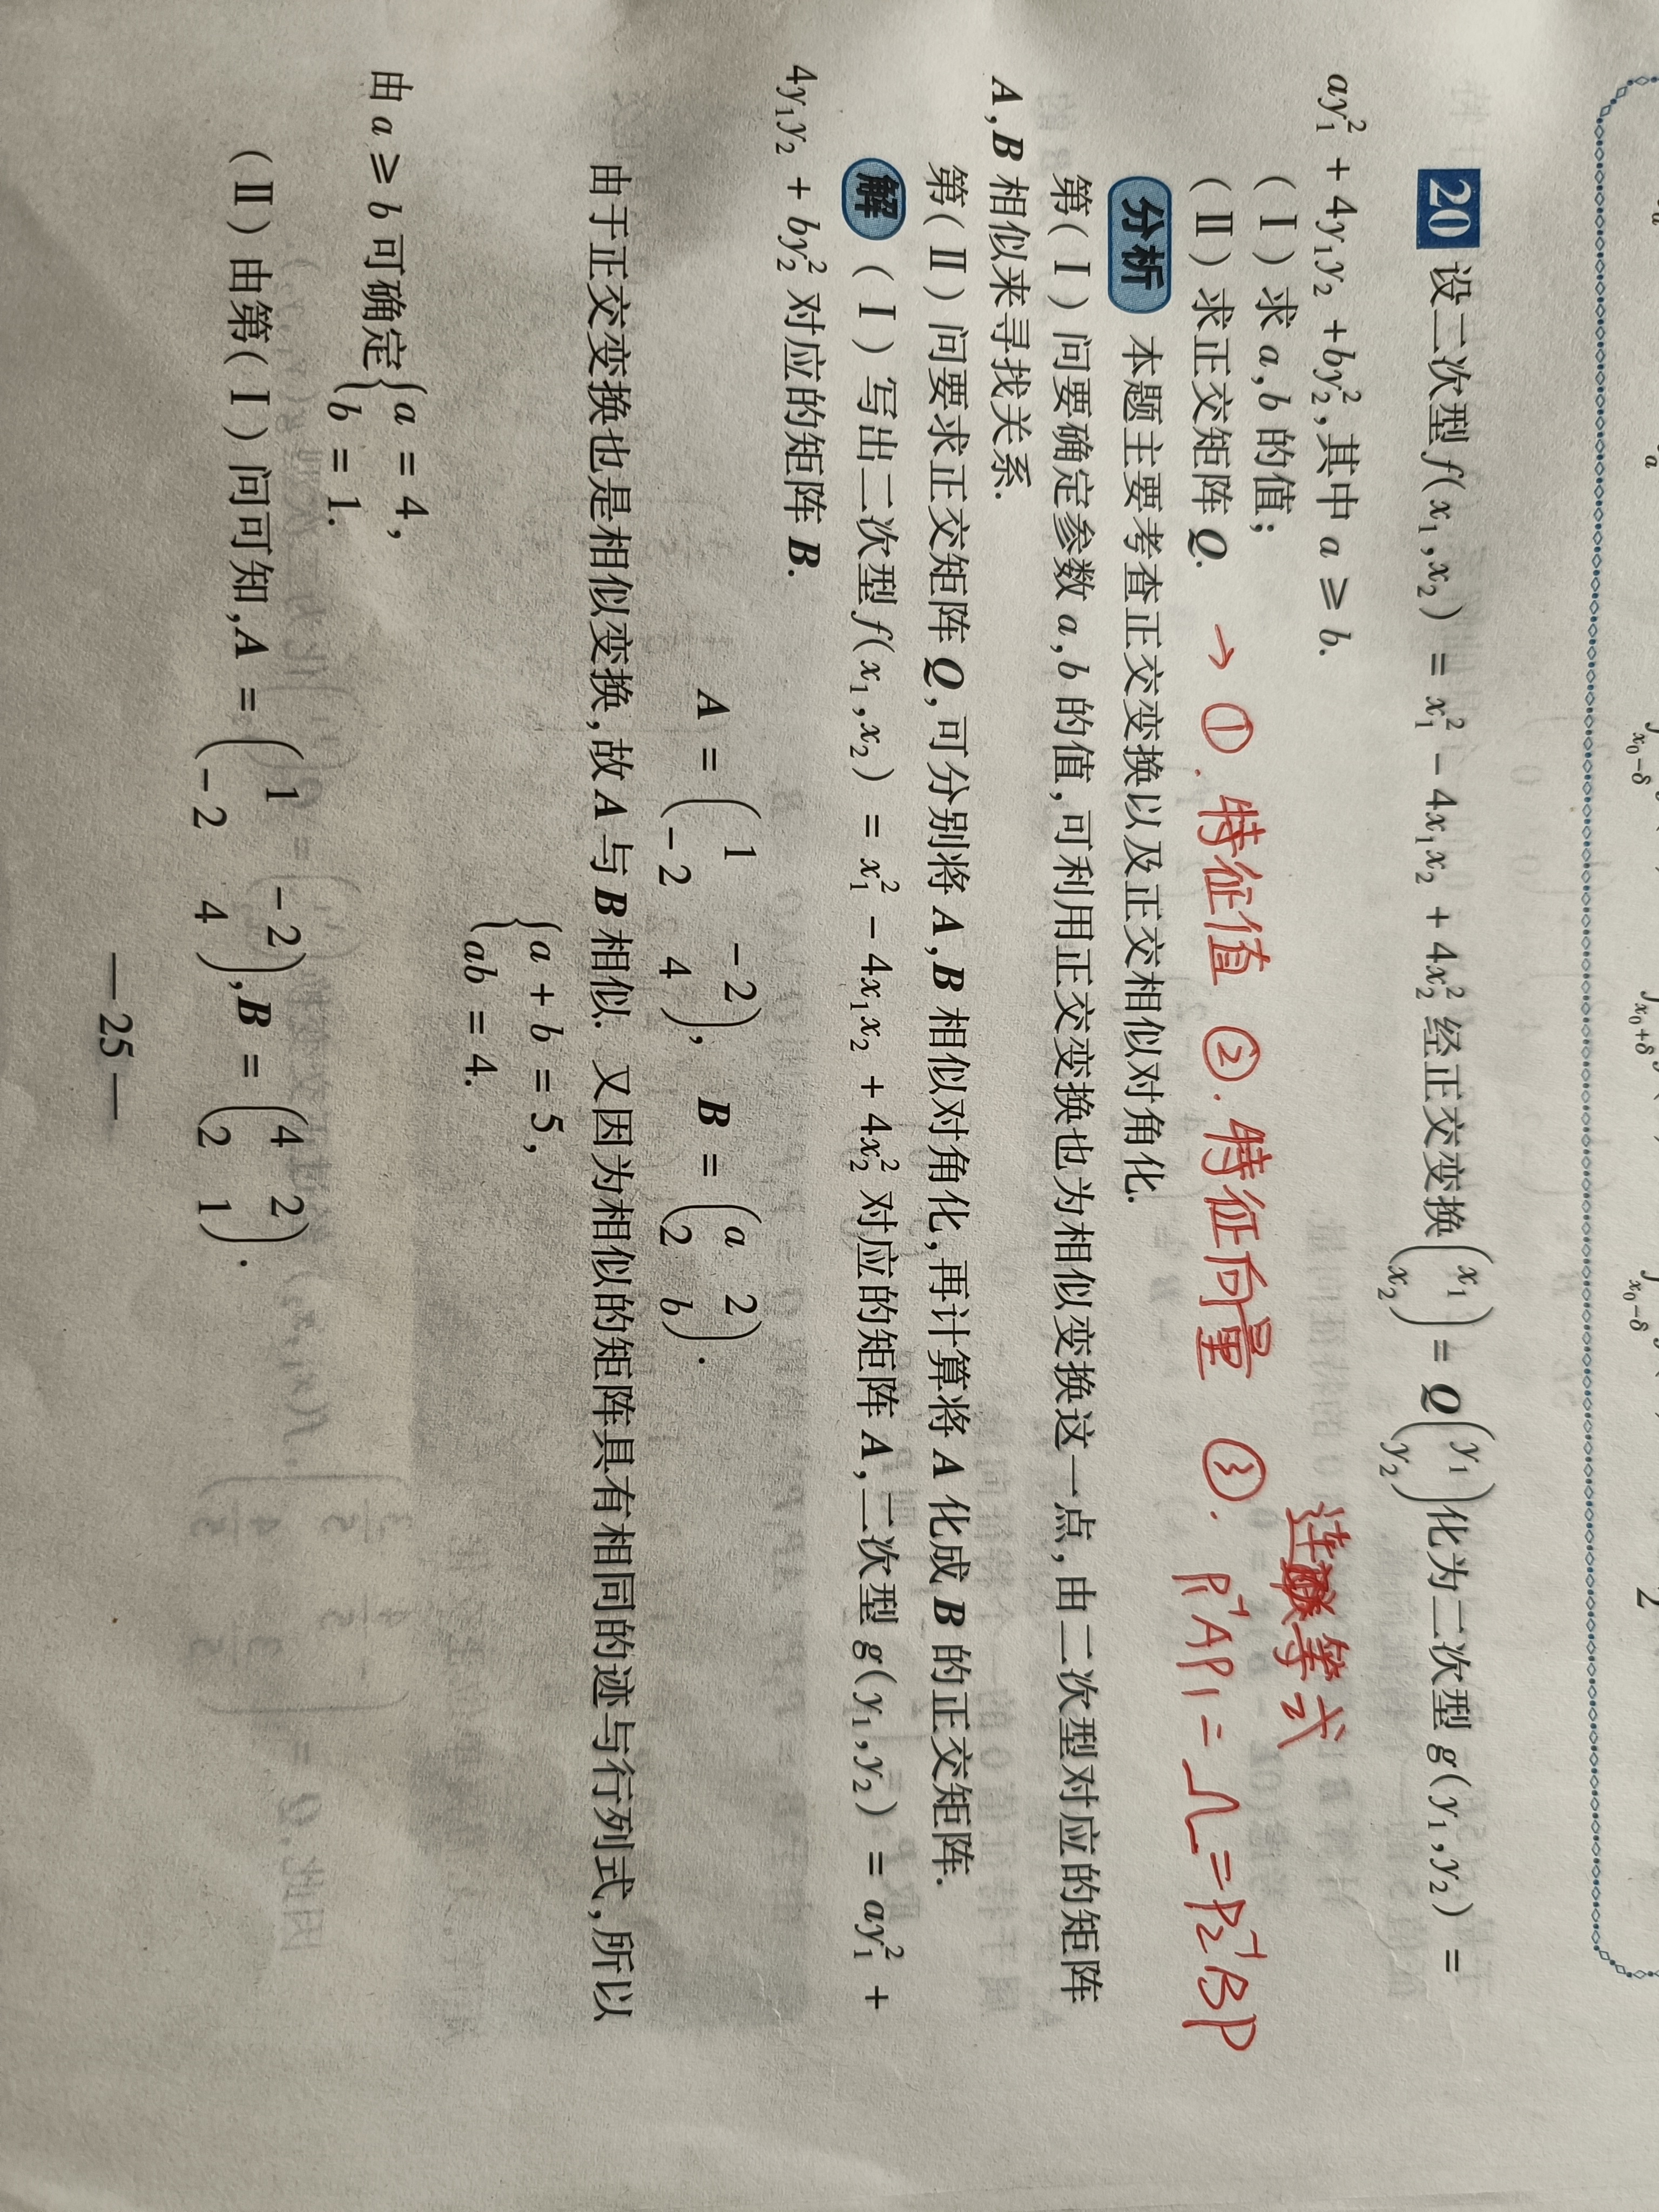 20 设二次型 f(x₁,x₂) = x₁² − 4x₁x₂ + 4x₂² 经正交变换 (x₁ x₂) = Q (y₁ y₂) 化为二次型 g(y₁,y₂) =
ay₁² + 4y₁y₂ + by₂²,其中 a ≥ b.
(Ⅰ)求 a,b 的值;
连续等式
(Ⅱ)求正交矩阵 Q. → ①. 特征值 ②. 特征向量 ③. P₁⁻¹AP₁ = Λ = P₂⁻¹BP
分析 本题主要考查正交变换以及正交相似对角化.
第(Ⅰ)问要确定参数 a,b 的值,可利用正交变换也为相似变换这一点,由二次型对应的矩阵
A,B 相似来寻找关系.
第(Ⅱ)问要求正交矩阵 Q,可分别将 A,B 相似对角化,再计算将 A 化成 B 的正交矩阵.
解 (Ⅰ)写出二次型 f(x₁,x₂) = x₁² − 4x₁x₂ + 4x₂² 对应的矩阵 A,二次型 g(y₁,y₂) = ay₁² +
4y₁y₂ + by₂² 对应的矩阵 B.
A = (1 −2
−2 4), B = (a 2
2 b).
由于正交变换也是相似变换,故 A 与 B 相似. 又因为相似的矩阵具有相同的迹与行列式,所以
{a + b = 5,
ab = 4.
由 a ≥ b 可确定 {a = 4,
b = 1.
(Ⅱ)由第(Ⅰ)问可知,A = (1 −2
−2 4),B = (4 2
2 1).
— 25 —